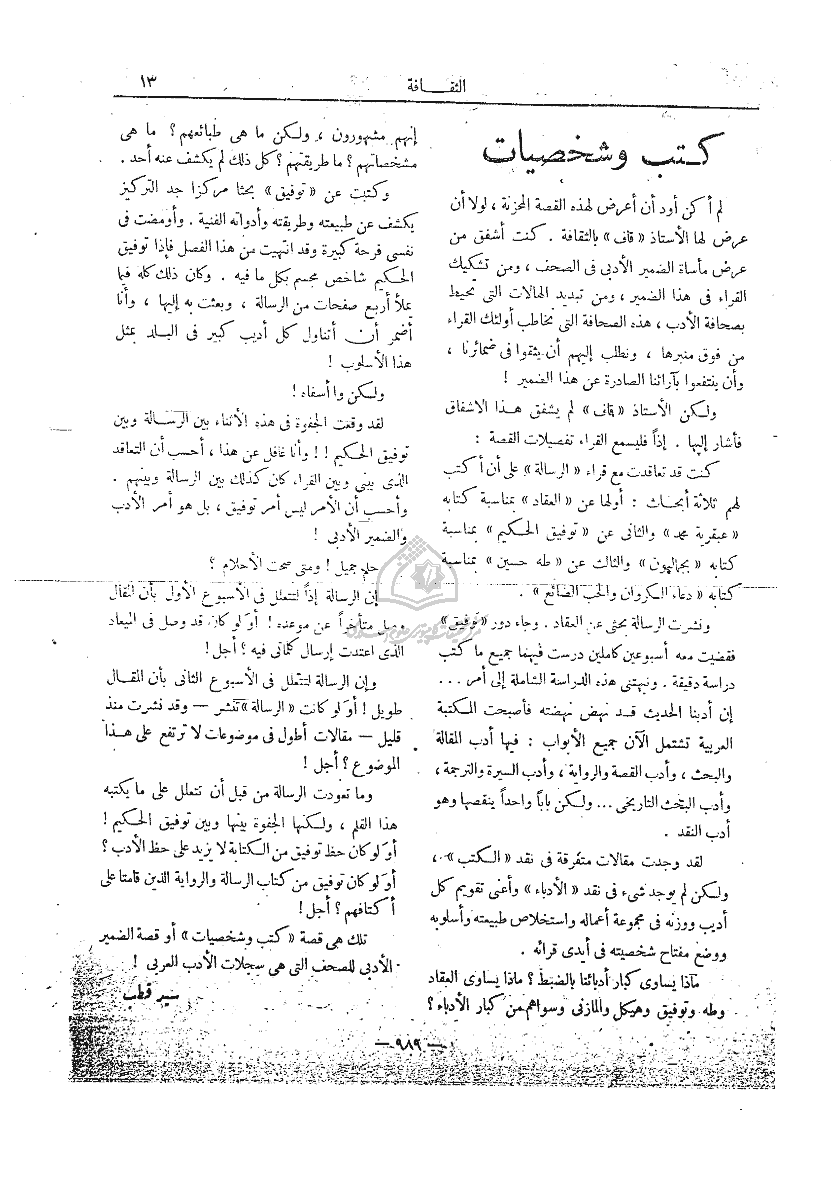 ١٣
الثقافة
كتب وشخصيات
لم أكن أود أن أعرض لهذه القصة المحزنة ، لولا أن
عرض لها الأستاذ « قاف » بالثقافة . كنت أشفق من
عرض مأساة الضمير الأدبى فى الصحف ، ومن تشكيك
القراء فى هذا الضمير ، ومن تبديد الهالات التى تحيط
بصحافة الأدب ، هذه الصحافة التى تخاطب أولئك القراء
من فوق منبرها ، ونطلب إليهم أن يثقوا فى ضمائرنا ،
وأن ينتفعوا بآرائنا الصادرة عن هذا الضمير !
ولكن الأستاذ « قاف » لم يشفق هذا الاشفاق
فأشار إليها . إذاً فليسمع القراء تفصيلات القصة :
كنت قد تعاقدت مع قراء « الرسالة » على أن أكتب
لهم ثلاثة أبحاث : أولها عن « العقاد » بمناسبة كتابه
« عبقرية محمد » والثانى عن « توفيق الحكيم » بمناسبة
كتابه « بجماليون » والثالث عن « طه حسين » بمناسبة
كتابه « دعاء الكروان والحب الضائع » .
ونشرت الرسالة بحثى عن العقاد . وجاء دور « توفيق »
فقضيت معه أسبوعين كاملين درست فيهما جميع ما كتب
دراسة دقيقة . ونبهتنى هذه الدراسة الشاملة إلى أمر ...
إن أدبنا الحديث قد نهض نهضته فأصبحت المكتبة
العربية تشتمل الآن جميع الأبواب : فيها أدب المقالة
والبحث ، وأدب القصة والرواية ، وأدب السيرة والترجمة ،
وأدب البحث التاريخى ... ولكن باباً واحداً ينقصها وهو
أدب النقد .
لقد وجدت مقالات متفرقة فى نقد « الكتب » ،
ولكن لم يوجد شىء فى نقد « الأدباء » وأعنى تقويم كل
أديب ووزنه فى مجموعة أعماله واستخلاص طبيعته وأسلوبه
ووضع مفتاح شخصيته فى أيدى قرائه .
ماذا يساوى كبار أدبائنا بالضبط ؟ ماذا يساوى العقاد
وطه وتوفيق وهيكل والمازنى وسواهم من كبار الأدباء ؟
إنهم مشهورون ، ولكن ما هى طبائعهم ؟ ما هى
مشخصاتهم ؟ ما طريقتهم ؟ كل ذلك لم يكشف عنه أحد .
وكتبت عن « توفيق » بحثا مركزا جد التركيز
يكشف عن طبيعته وطريقته وأدواته الفنية . وأومضت فى
نفسى فرحة كبيرة وقد انتهيت من هذا الفصل فإذا توفيق
الحكيم شاخص مجسم بكل ما فيه . وكان ذلك كله فيما
يملأ أربع صفحات من الرسالة ، وبعثت به إليها ، وأنا
أضمر أن أتناول كل أديب كبير فى البلد بمثل
هذا الأسلوب !
ولكن وا أسفاه !
لقد وقعت الجفوة فى هذه الأثناء بين الرسالة وبين
توفيق الحكيم !! وأنا غافل عن هذا ، أحسب أن التعاقد
الذى بينى وبين القراء كان كذلك بين الرسالة وبينهم .
وأحسب أن الأمر ليس أمر توفيق ، بل هو أمر الأدب
والضمير الأدبى !
حلم جميل ! ومتى صحت الأحلام ؟
إن الرسالة إذاً لتتعلل فى الأسبوع الأول بأن المقال
وصل متأخراً عن موعده ! أو لو كان قد وصل فى الميعاد
الذى اعتدت إرسال كلماتى فيه ؟ أجل !
وإن الرسالة لتتعلل فى الأسبوع الثانى بأن المقال
طويل ! أو لو كانت « الرسالة » تنشر — وقد نشرت منذ
قليل — مقالات أطول فى موضوعات لا ترتفع على هذا
الموضوع ؟ أجل !
وما تعودت الرسالة من قبل أن تتعلل على ما يكتبه
هذا القلم ، ولكنها الجفوة بينها وبين توفيق الحكيم !
أو لو كان حظ توفيق من الكتابة لا يزيد على حظ الأدب ؟
أو لو كان توفيق من كتاب الرسالة والرواية الذين قامتا على
أكتافهم ؟ أجل !
تلك هى قصة « كتب وشخصيات » أو قصة الضمير
الأدبى للصحف التى هى سجلات الأدب العربى !
سيد قطب
— ٩٨٩ —